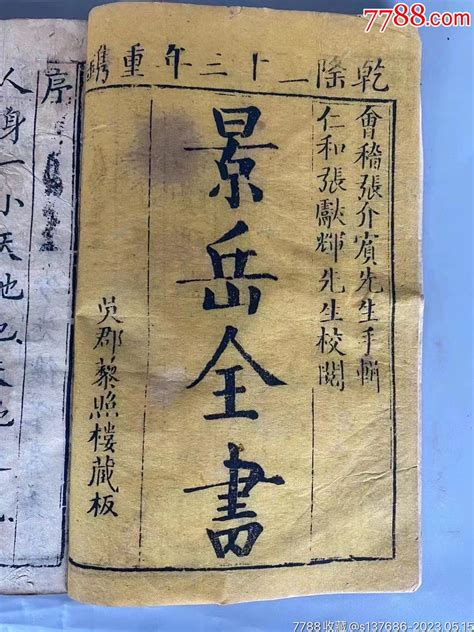 7788.com
乾隆二十三年重鐫
會稽張介賓先生手輯
仁和張獻輝先生校閱
景岳全書
吳郡藜照樓藏板
序
人身一小天地也
7788收藏@s137686-2023.05.15